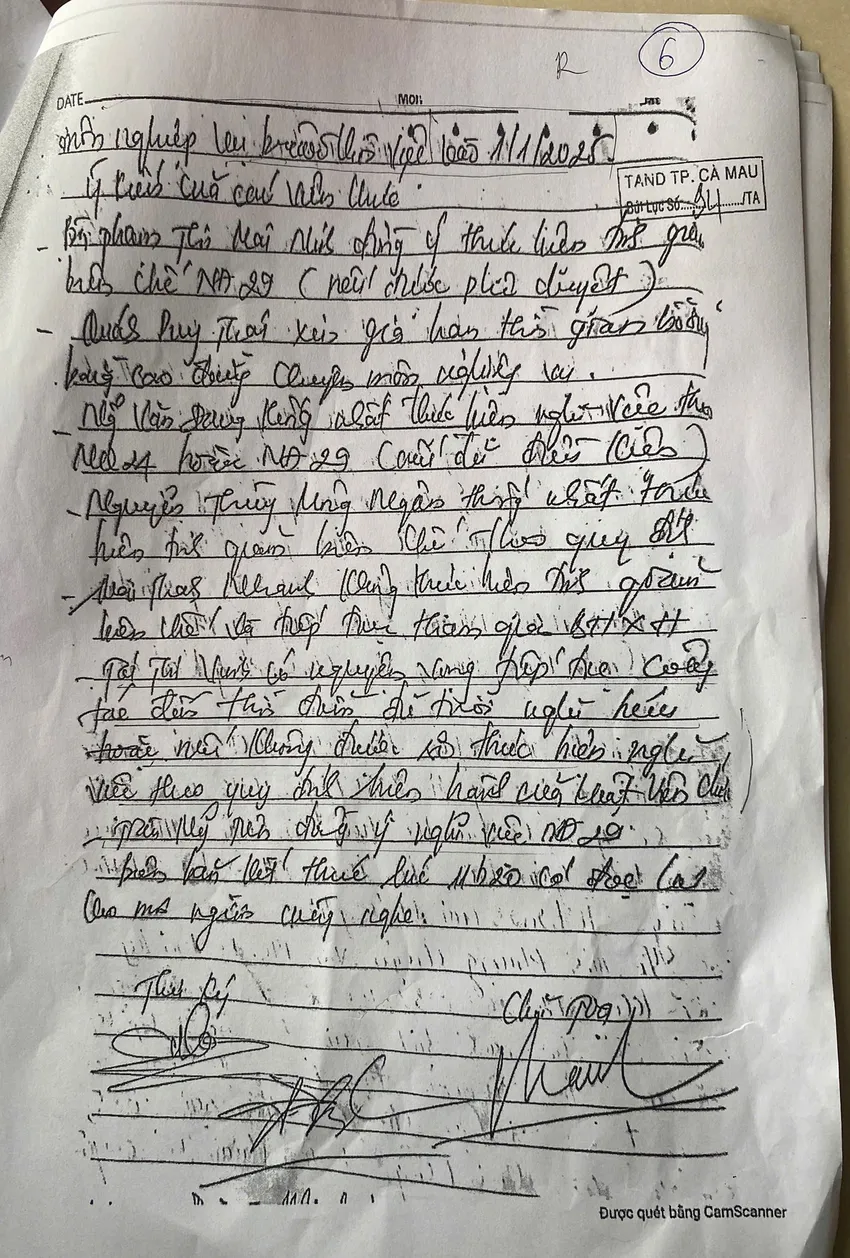 R 6
DATE MON
môn nghiệp vụ trước thôi việc 1/1/2025.
TAND TP. CÀ MAU
Ý kiến của các viên chức
Bút Lục Số:...94....../TA
- Bà Phạm Thị Mai đồng ý thực hiện tinh giản
biên chế NĐ 29 (nếu được phê duyệt)
- Quách Huy Thái xin gia hạn thời gian bồi
cao đẳng chuyên môn nghiệp vụ.
- Văn thống nhất thực hiện nghỉ việc theo
NĐ 24 hoặc NĐ 29 (nếu đủ điều kiện)
- Nguyễn Thùy Ngân thống nhất thực
hiện tinh giản biên chế theo quy định
- Mai Khanh thực hiện tinh giản
biên chế và tiếp tục tham gia BHXH
- Thị có nguyện vọng tiếp tục công
tác đến thời điểm đủ tuổi nghỉ hưu
hoặc nếu không được sẽ thực hiện nghỉ
việc theo quy định hiện hành của luật viên chức
- Mỹ đồng ý nghỉ việc NĐ 29.
- biên bản kết thúc lúc 11h20 có đọc lại
cho mọi người cùng nghe.
Thư ký Chủ tọa
Được quét bằng CamScanner